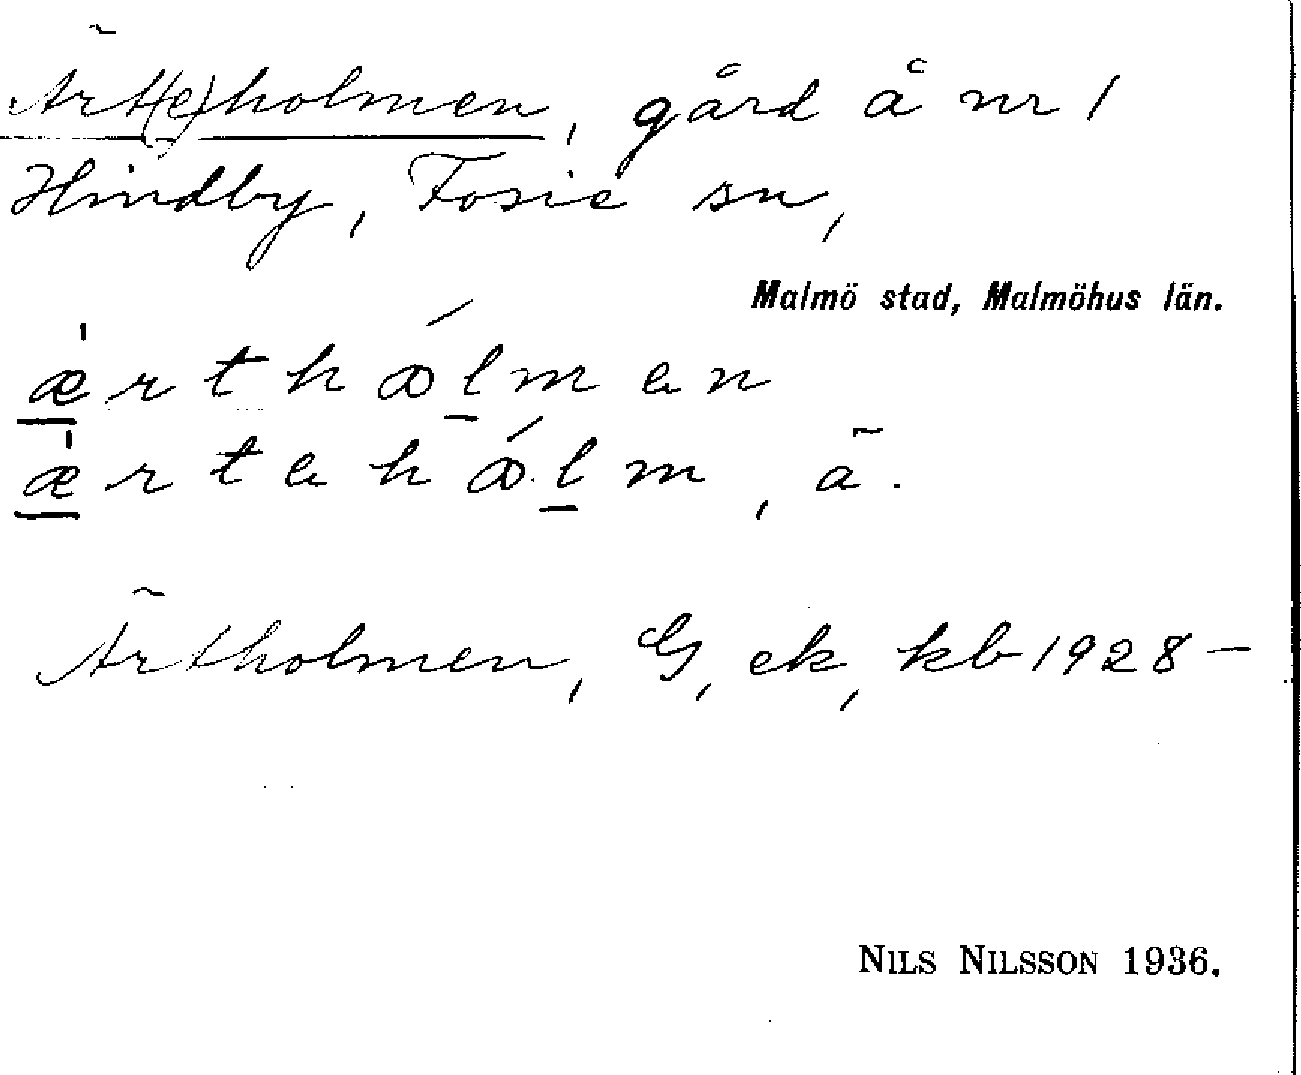 Ärt(e)holmen, gård å nr 1
Hindby, Fosie sn,
Malmö stad, Malmöhus län.
ærthålmen
ærtehålm, ä.
Ärtholmen, G, ek, kb 1928–
NILS NILSSON 1936.